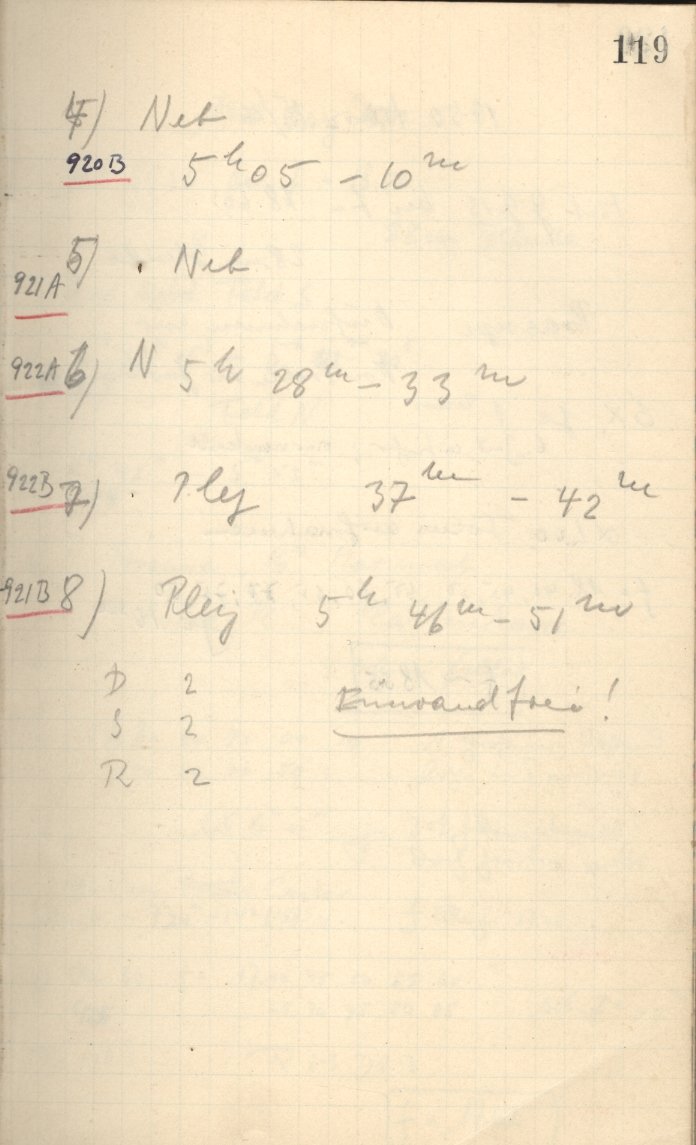 119
4) Neb
920B 5h 05 – 10m
5) . Neb
921A
922A 6) N 5h 28m – 33m
922B 7) . Plej 37m – 42m
921B 8) Plej 5h 46m – 51m
D 2 Einwandfrei!
S 2
R 2